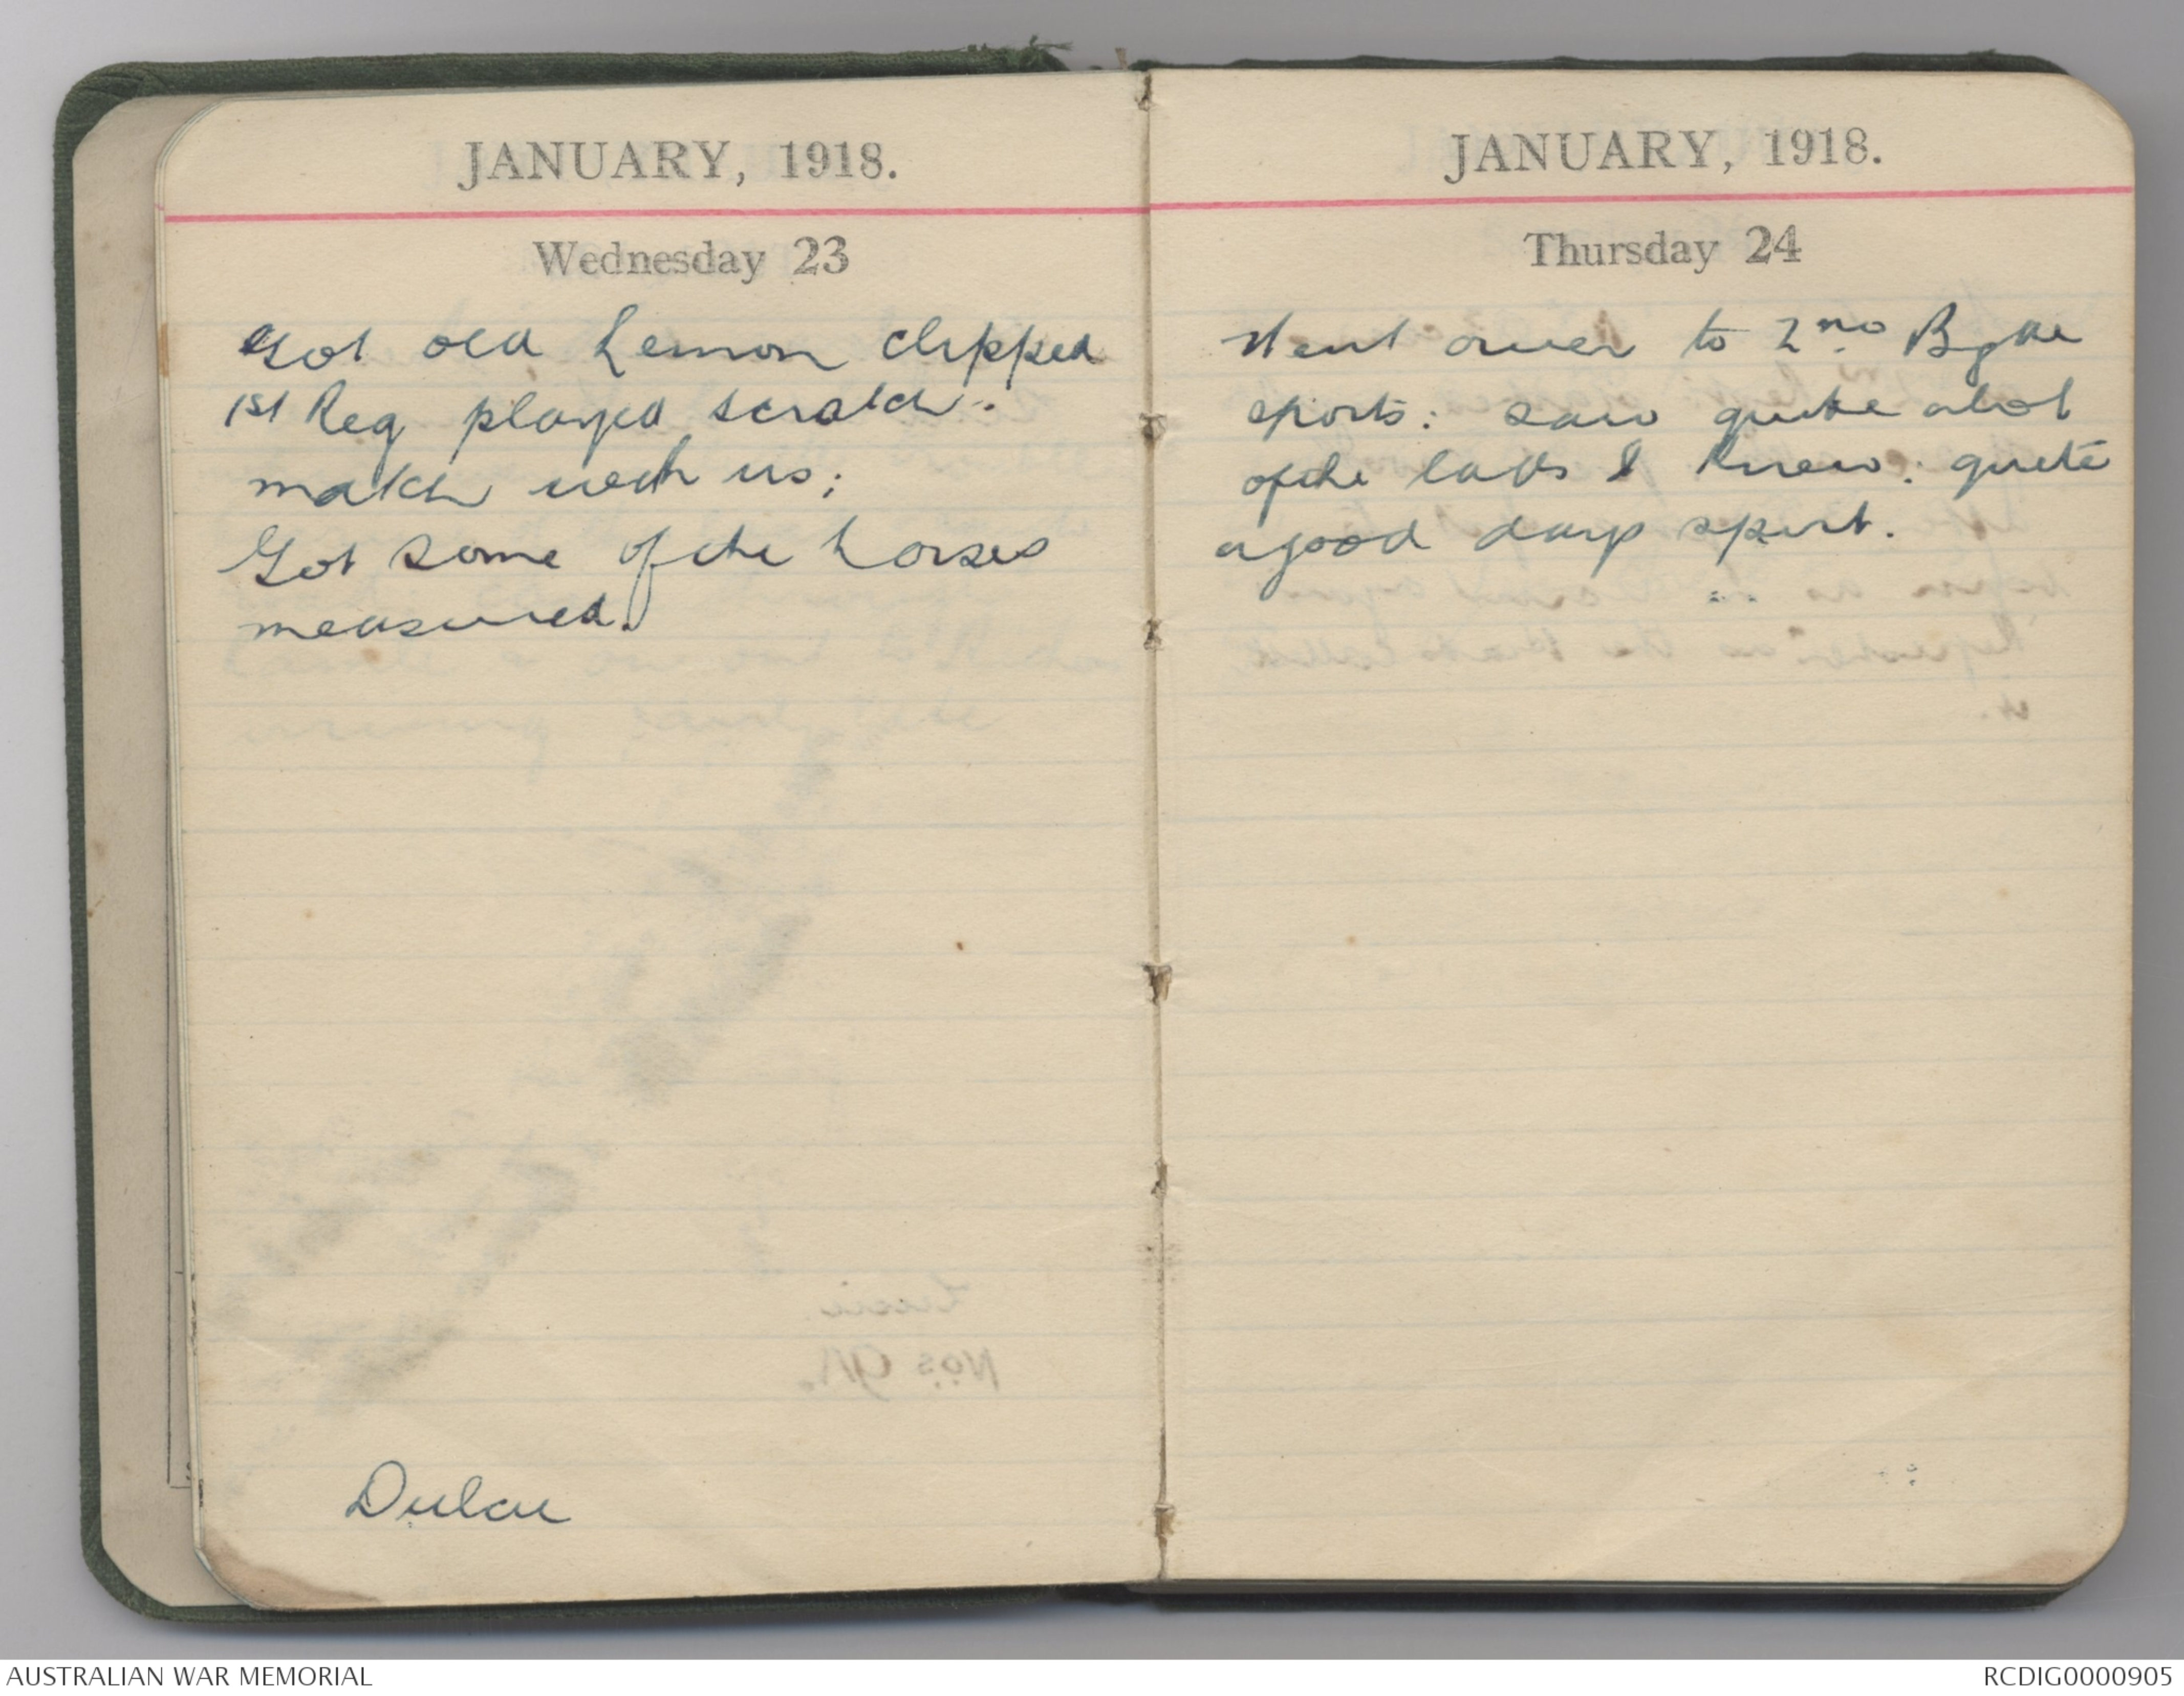 JANUARY, 1918.
Wednesday 23
Got old Lemon clipped
1st Reg played scratch.
match with us;
Got some of the horses
measured.
Dulcie
JANUARY, 1918.
Thursday 24
Went over to 2nd Bgde
sports: saw quite alot
of the lads I knew: quite
a good days sport.
AUSTRALIAN WAR MEMORIAL
RCDIG0000905